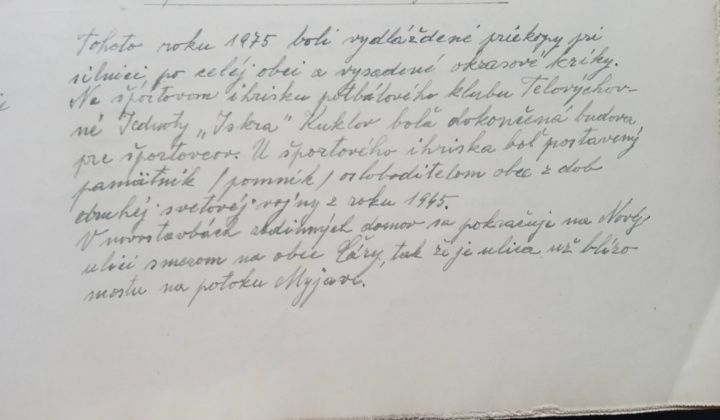 Tohoto roku 1975 boli vydláždené priekopy pri
silnici, po celéj obci a vysadené okrasové kríky.
Na športovom ihrisku futbálového klubu Telovýchov-
né Jednoty „Iskra" Kuklov bola dokončená budova
pre športovcov. U športového ihriska bol postavený
pamätník /pomník/ osloboditelom obce z dob
druhéj svetovéj vojny z roku 1945.
V novostavbách rodinných domov sa pokračuje na Novéj
ulici smerom na obec Čáry, tak že je ulica už blízo
mostu na potoku Myjave.